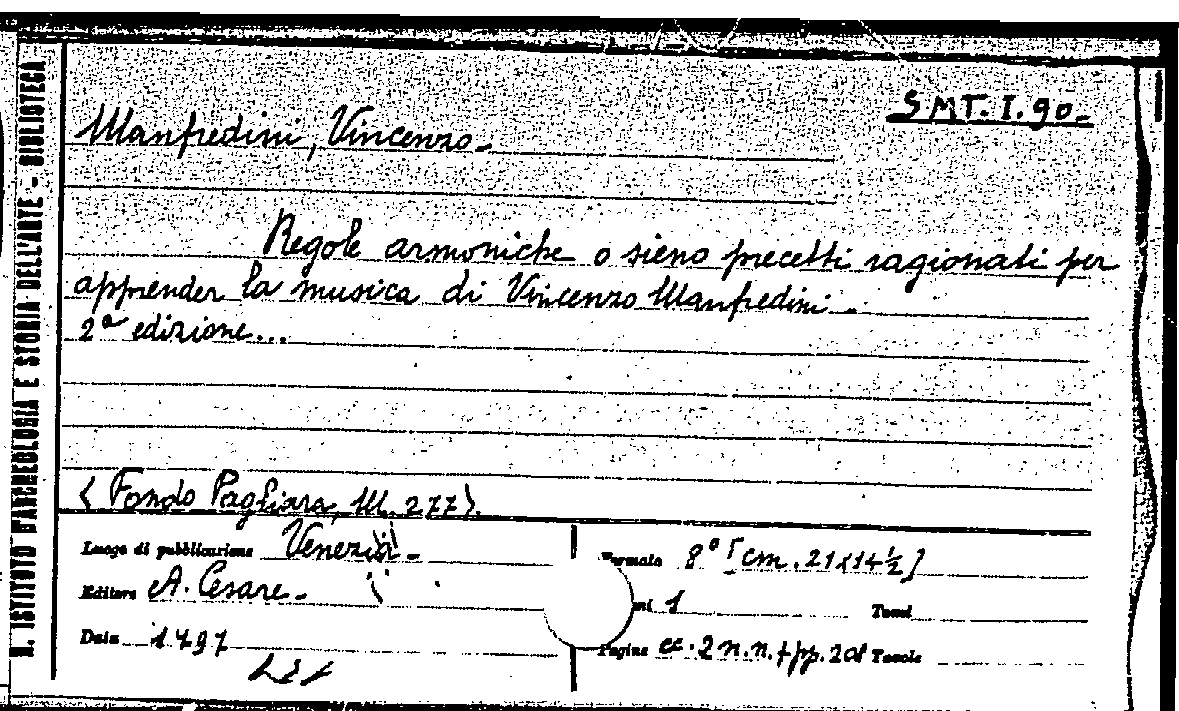 R. ISTITUTO D'ARCHEOLOGIA E STORIA DELL'ARTE - BIBLIOTECA
SMT. I. 90-
Manfredini, Vincenzo-
Regole armoniche o sieno precetti ragionati per
apprender la musica di Vincenzo Manfredini -
2ª edizione...
(Fondo Pagliara, M. 277).
Luogo di pubblicazione Venezia-
Editore A. Cesare-
Data 1797
Formato 8° [cm. 21x14½]
mi 1 Tomi
Pagine cc. 2 n.n. + pp. 201 Tavole